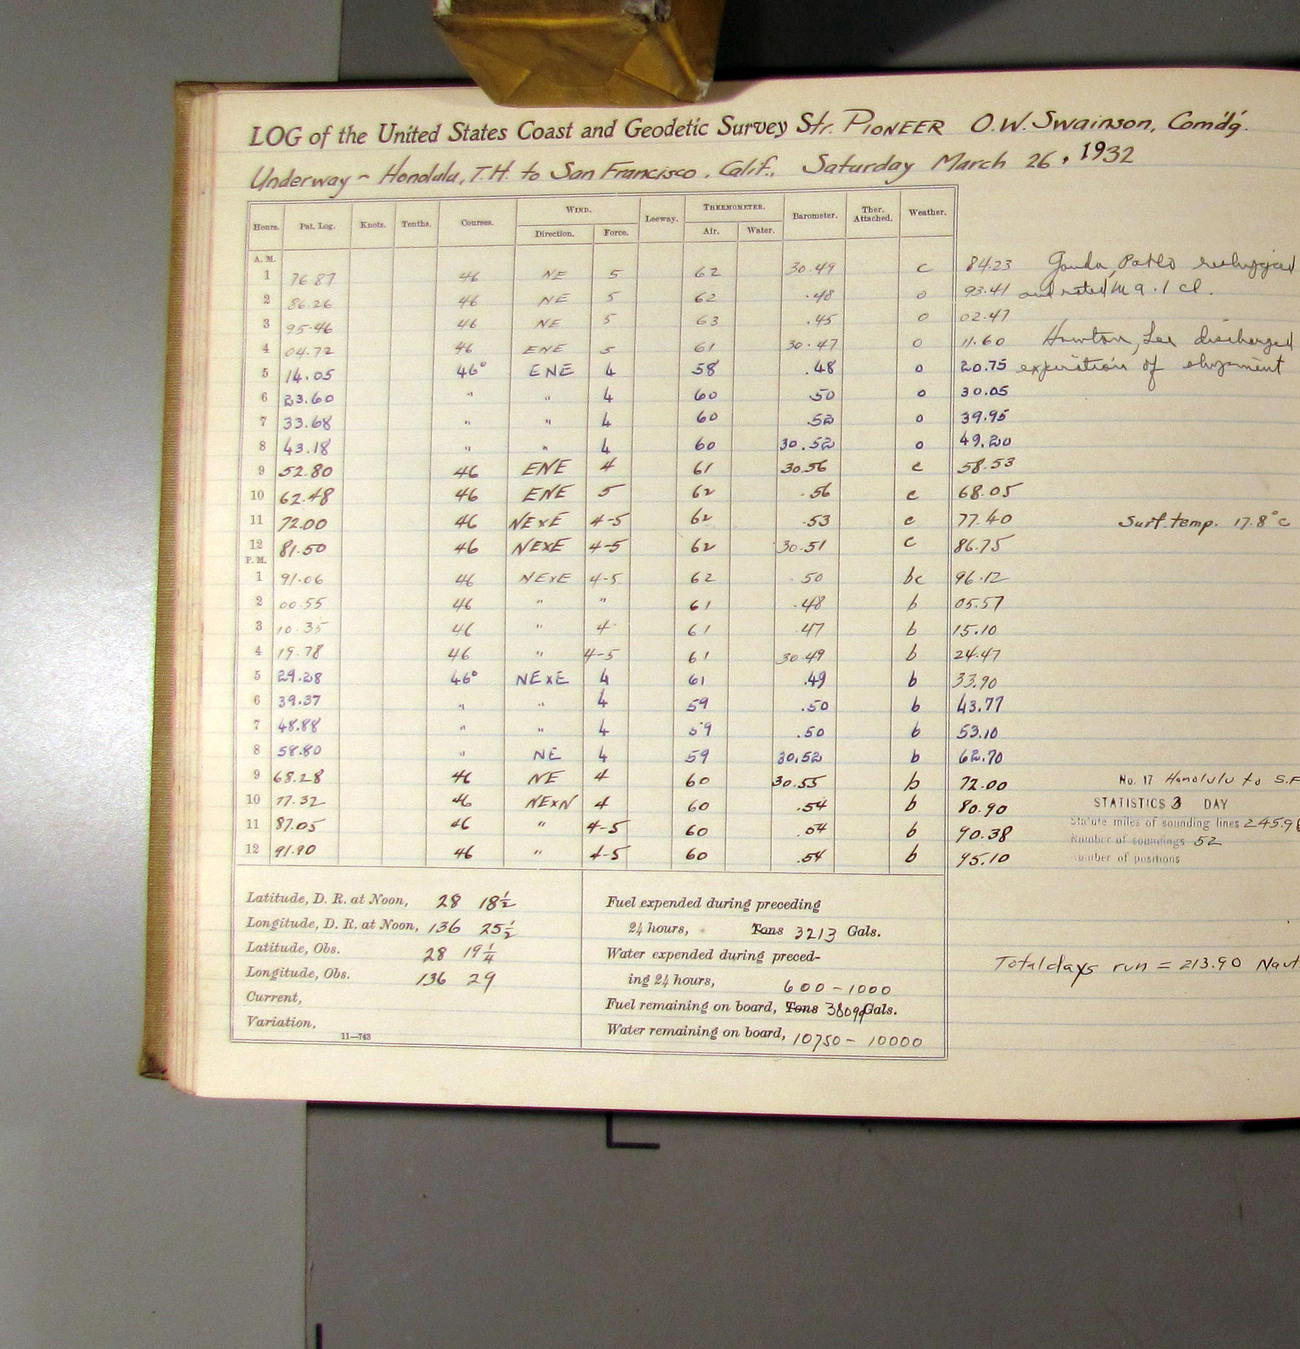 LOG of the United States Coast and Geodetic Survey Str. PIONEER O.W. Swainson, Com'd'g.
Underway - Honolulu, T.H. to San Francisco, Calif., Saturday March 26, 1932
Hours. Pat. Log. Knots. Tenths. Courses. WIND. Direction. Force. Leeway. THERMOMETER. Air. Water. Barometer. Ther. Attached. Weather.
A. M.
1 76.87 46 NE 5 62 30.49 c 84.23 Pablo
2 86.26 46 NE 5 62 .48 o 93.41 and rated
3 95.46 46 NE 5 63 .45 o 02.47
4 04.72 46 ENE 5 61 30.47 o 11.60 Lee discharged
5 14.05 46° ENE 4 58 .48 o 20.75 expiration of
6 23.60 " " 4 60 .50 o 30.05
7 33.68 " " 4 60 .52 o 39.95
8 43.18 " " 4 60 30.52 o 49.20
9 52.80 46 ENE 4 61 30.56 c 58.53
10 62.48 46 ENE 5 62 .56 c 68.05
11 72.00 46 NExE 4-5 62 .53 c 77.40 Surf. temp. 17.8°c
12 81.50 46 NExE 4-5 62 30.51 c 86.75
P. M.
1 91.06 46 NExE 4-5 62 .50 bc 96.12
2 00.55 46 " " 61 .48 b 05.57
3 10.35 46 " 4 61 .47 b 15.10
4 19.78 46 " 4-5 61 30.49 b 24.47
5 29.28 46° NExE 4 61 .49 b 33.90
6 39.37 " " 4 59 .50 b 43.77
7 48.88 " " 4 59 .50 b 53.10
8 58.80 " NE 4 59 30.52 b 62.70
9 68.28 46 NE 4 60 30.55 b 72.00 No. 17 Honolulu to S.F
10 77.32 46 NExN 4 60 .54 b 80.90 STATISTICS 3 DAY
11 87.05 46 " 4-5 60 .54 b 90.38 Statute miles of sounding lines 245.9
12 91.90 46 " 4-5 60 .54 b 95.10 Number of soundings 52
Number of positions
Latitude, D. R. at Noon, 28 18½
Longitude, D. R. at Noon, 136 25½
Latitude, Obs. 28 19¼
Longitude, Obs. 136 29
Current,
Variation,
11—743
Fuel expended during preceding
24 hours, Tons 3213 Gals.
Water expended during preced-
ing 24 hours, 600 - 1000
Fuel remaining on board, Tons Gals.
Water remaining on board, 10750 - 10000
Total days run = 213.90 Naut